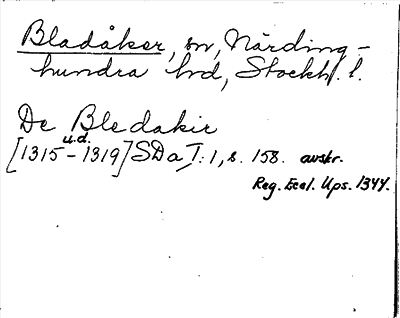 Bladåker, sn, Närding-
hundra hd, Stockh. l.
De Bledakir
u.d.
[1315-1319] SDa I: 1, s. 158. avskr.
Reg. Eccl. Ups. 1344.